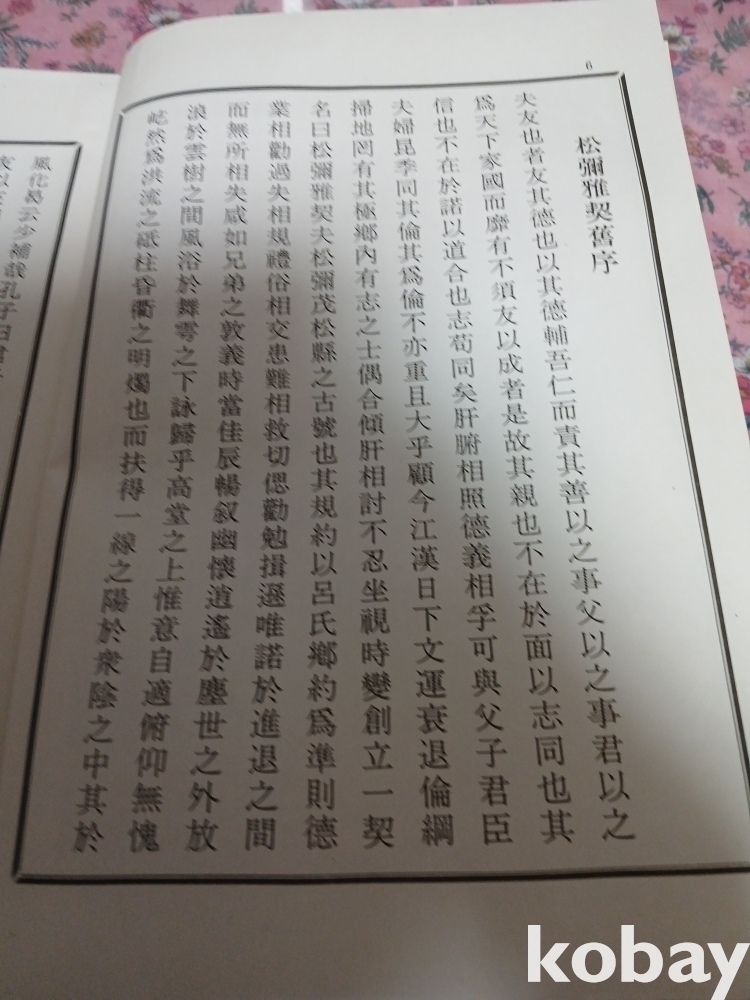 6
松彌雅契舊序
夫友也者友其德也以其德輔吾仁而責其善以之事父以之事君以之
爲天下家國而靡有不須友以成者是故其親也不在於面以志同也其
信也不在於諾以道合也志苟同矣肝腑相照德義相孚可與父子君臣
夫婦昆季同其倫其爲倫不亦重且大乎顧今江漢日下文運衰退倫綱
掃地罔有其極鄉內有志之士偶合傾肝相討不忍坐視時變創立一契
名曰松彌雅契夫松彌茂松縣之古號也其規約以呂氏鄕約爲準則德
業相勸過失相規禮俗相交患難相救切偲勸勉揖遜唯諾於進退之間
而無所相失咸如兄弟之敦義時當佳辰暢叙幽懷逍遙於塵世之外放
浪於雲樹之間風俗於舞雩之下詠歸乎高堂之上惟意自適俯仰無愧
屹然爲洪流之砥柱昏衢之明燭也而扶得一線之陽於衆陰之中其於
風化曷云少補哉孔子曰君
友以
kobay